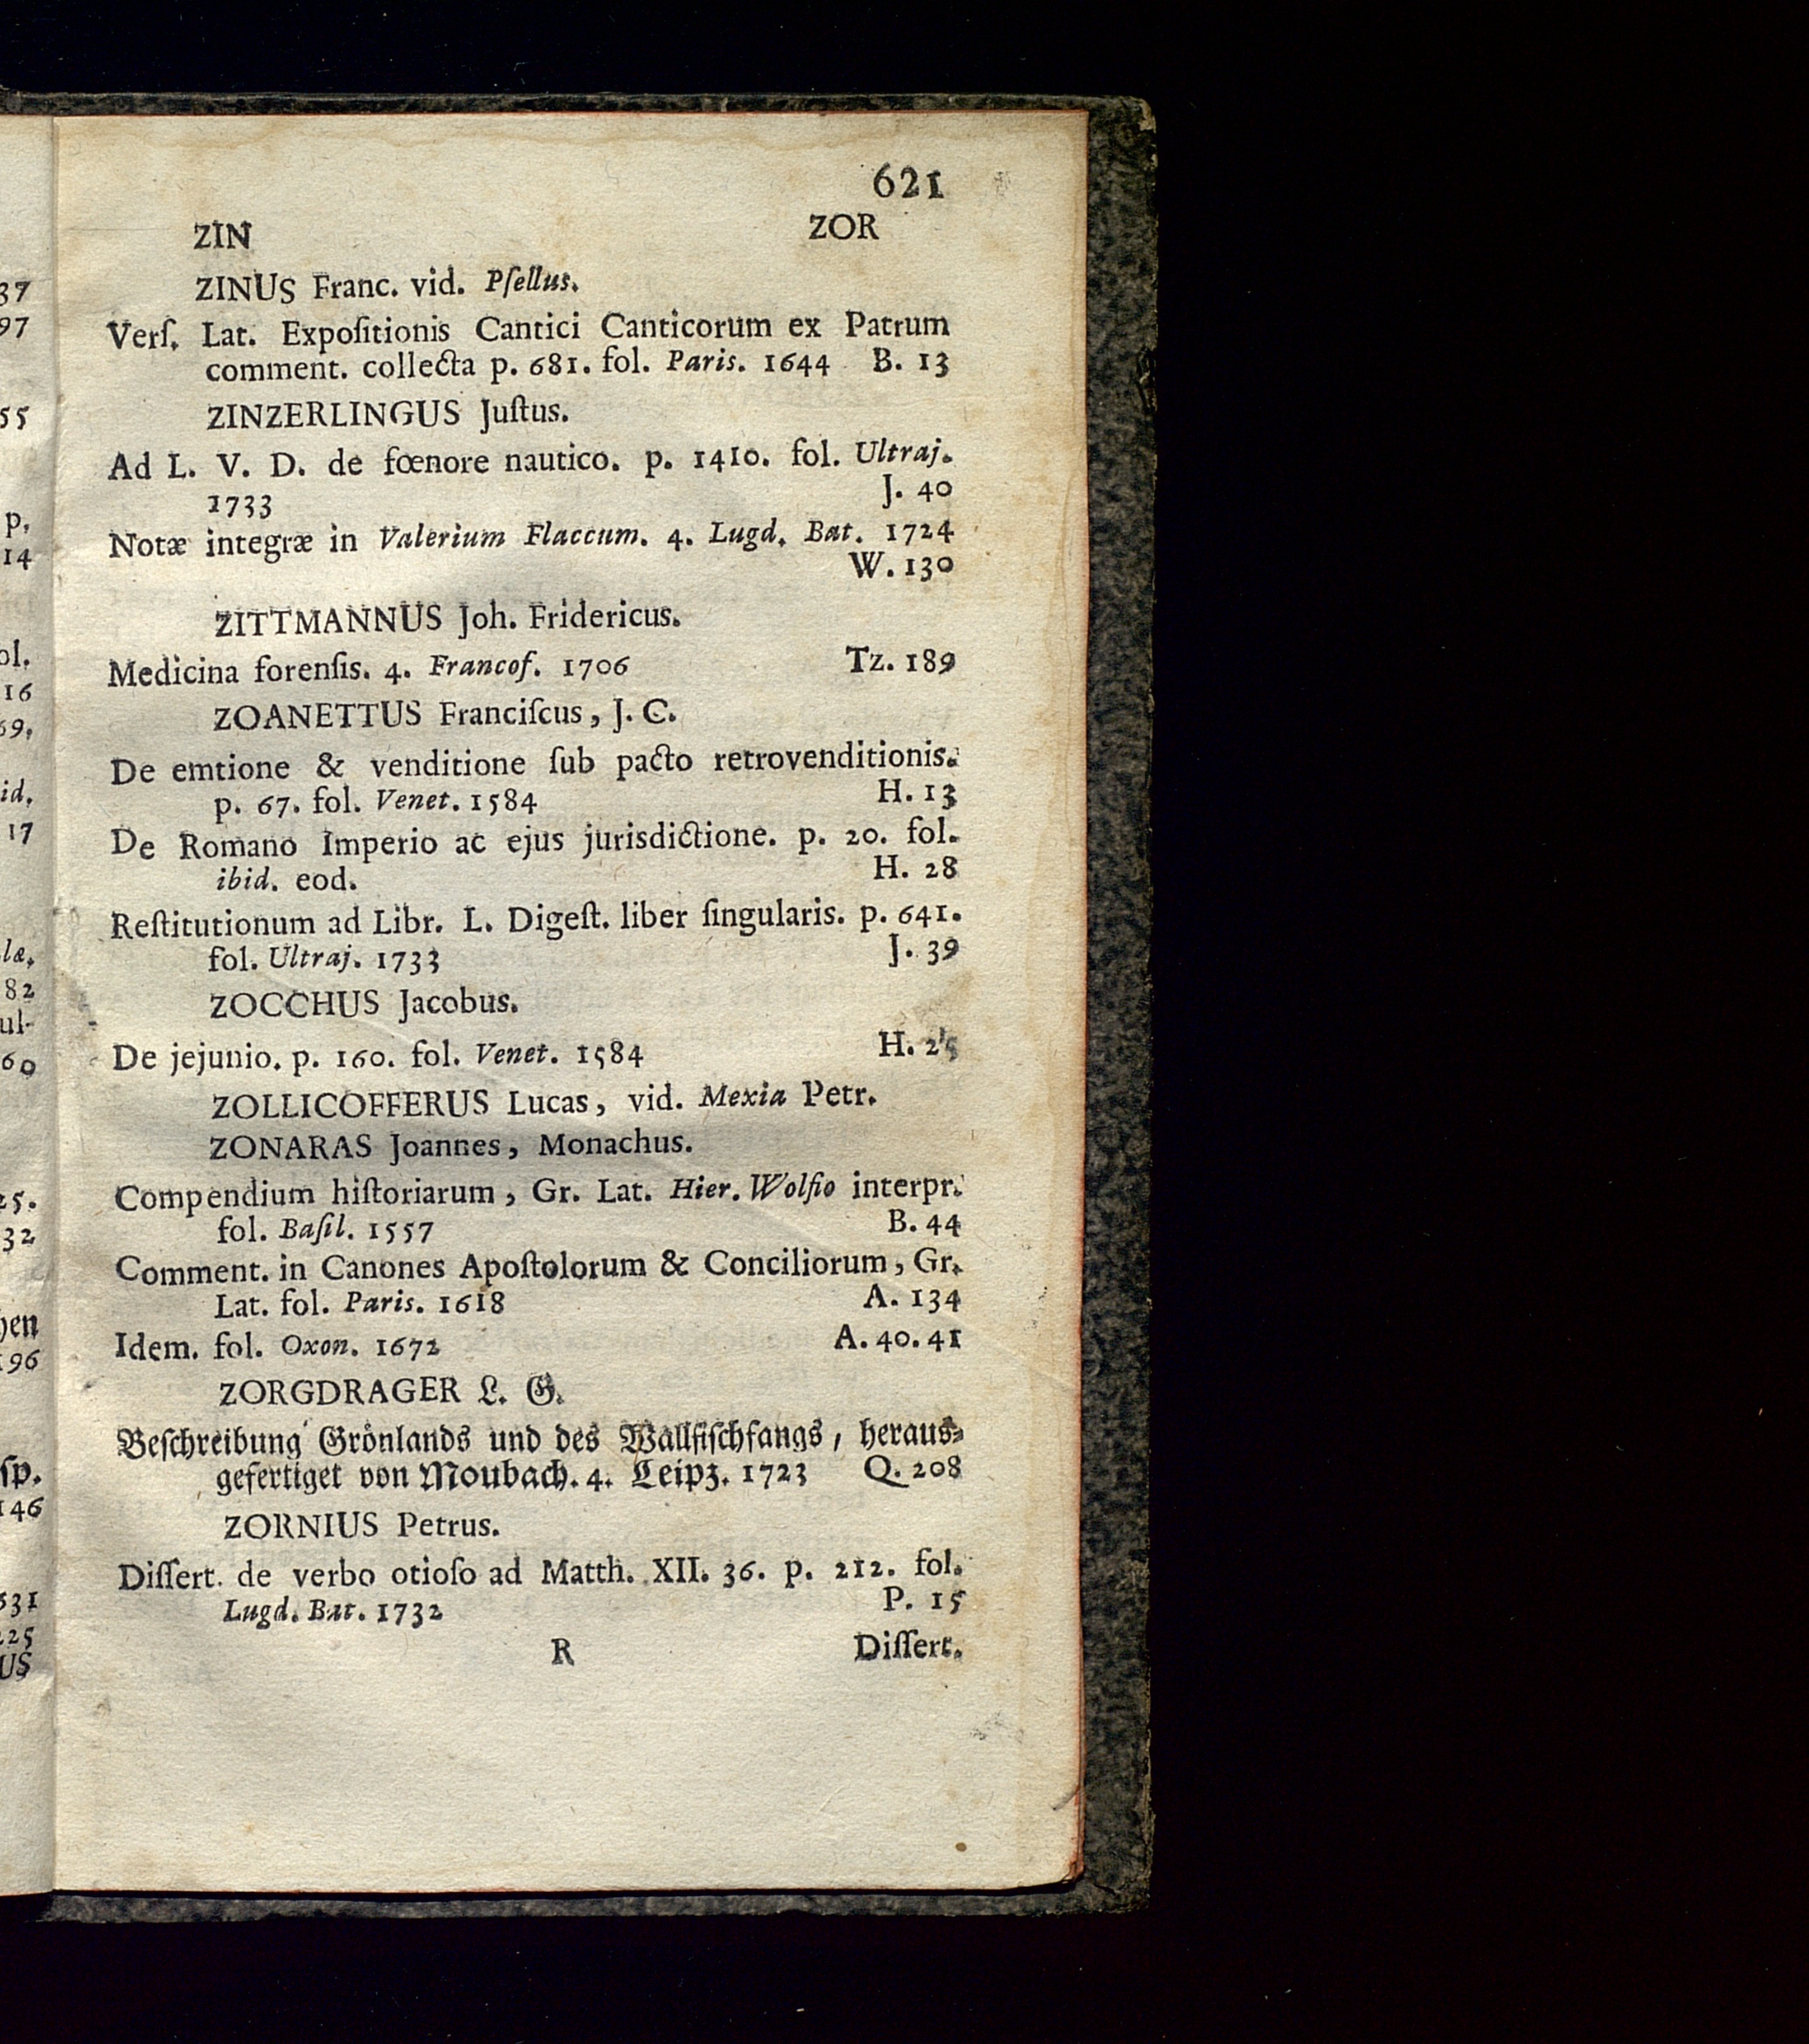 621
ZIN ZOR
ZINUS Franc. vid. Pſellus.
Verſ. Lat. Expoſitionis Cantici Canticorum ex Patrum
comment. collecta p. 681. fol. Paris. 1644 B. 13
ZINZERLINGUS Juſtus.
Ad L. V. D. de fœnore nautico. p. 1410. fol. Ultraj.
1733 J. 40
Notæ integræ in Valerium Flaccum. 4. Lugd. Bat. 1724
W. 130
ZITTMANNUS Joh. Fridericus.
Medicina forenſis. 4. Francof. 1706 Tz. 189
ZOANETTUS Franciſcus, J. C.
De emtione & venditione ſub pacto retrovenditionis.
p. 67. fol. Venet. 1584 H. 13
De Romano Imperio ac ejus jurisdictione. p. 20. fol.
ibid. eod. H. 28
Reſtitutionum ad Libr. L. Digeſt. liber ſingularis. p. 641.
fol. Ultraj. 1733 J. 39
ZOCCHUS Jacobus.
De jejunio. p. 160. fol. Venet. 1584 H. 25
ZOLLICOFFERUS Lucas, vid. Mexia Petr.
ZONARAS Joannes, Monachus.
Compendium hiſtoriarum, Gr. Lat. Hier. Wolfio interpr.
fol. Baſil. 1557 B. 44
Comment. in Canones Apoſtolorum & Conciliorum, Gr.
Lat. fol. Paris. 1618 A. 134
Idem. fol. Oxon. 1672 A. 40. 41
ZORGDRAGER L. G.
Beſchreibung Grönlands und des Wallfiſchfangs, heraus-
gefertiget von Moubach. 4. Leipz. 1723 Q. 208
ZORNIUS Petrus.
Diſſert. de verbo otioſo ad Matth. XII. 36. p. 212. fol.
Lugd. Bat. 1732 P. 15
R Diſſert.